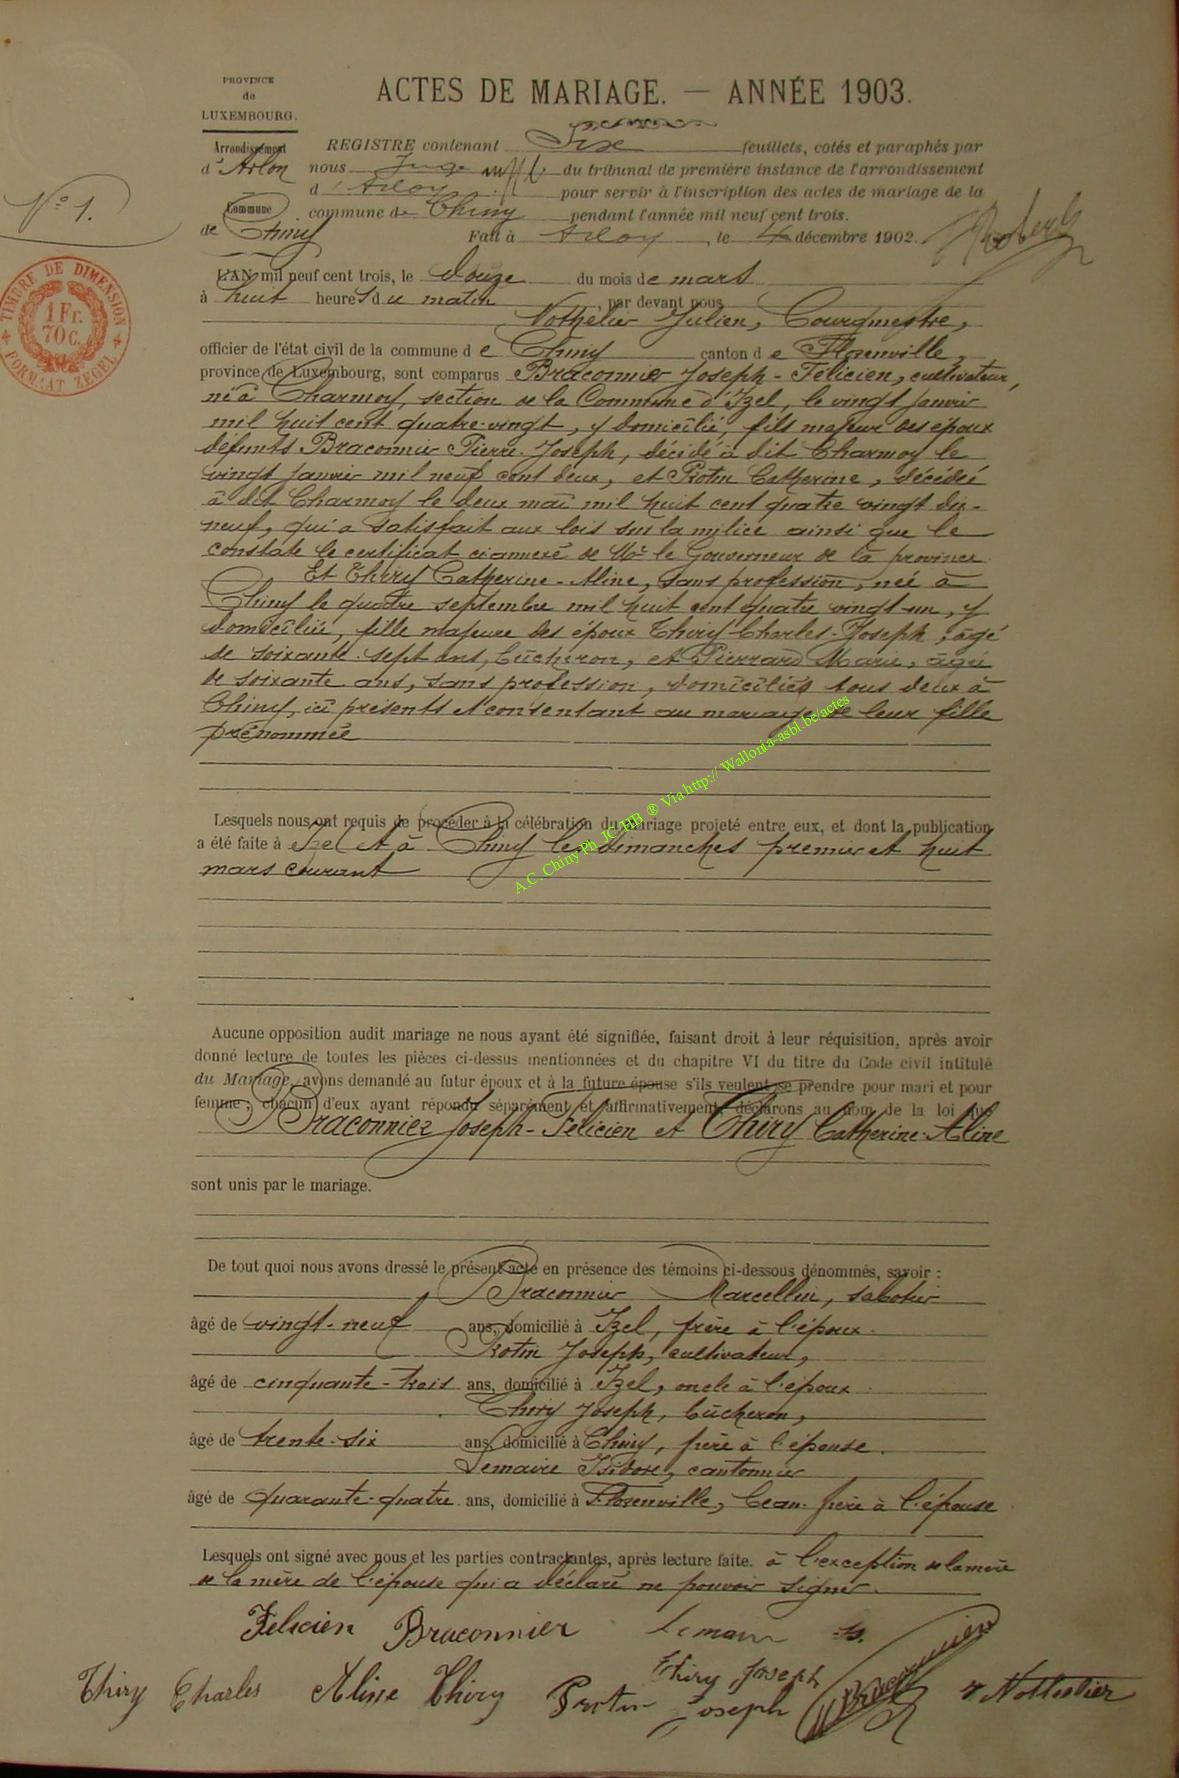 PROVINCE
de
LUXEMBOURG.
ACTES DE MARIAGE. — ANNÉE 1903.
Arrondissement
d'Arlon
Commune
de Chiny
N° 1.
TIMBRE DE DIMENSION
1 Fr.
70 c.
FORMAAT ZEGEL
REGISTRE contenant Six feuillets, cotés et paraphés par
nous Juge du tribunal de première instance de l'arrondissement
d'Arlon pour servir à l'inscription des actes de mariage de la
commune de Chiny pendant l'année mil neuf cent trois.
Fait à Arlon, le 4 décembre 1902.
L'AN mil neuf cent trois, le douze du mois de mars
à huit heures du matin, par devant nous
Nothelier Julien, Bourgmestre,
officier de l'état civil de la commune de Chiny canton de Florenville,
province de Luxembourg, sont comparus Braconnier Joseph-Félicien, cultivateur,
né à Charmoy, section de la Commune d'Izel, le vingt janvier
mil huit cent quatre-vingt, y domicilié, fils majeur des époux
défunts Braconnier Pierre-Joseph, décédé à dit Charmoy le
vingt janvier mil neuf cent deux, et Protin Catherine, décédée
à dit Charmoy le deux mai mil huit cent quatre vingt dix-
neuf, qui a satisfait aux lois sur la milice ainsi que le
constate le certificat ci annexé de Mr le Gouverneur de la province.
Et Thiry Catherine-Aline, sans profession, née à
Chiny le quatre septembre mil huit cent quatre vingt-un, y
domiciliée, fille majeure des époux Thiry Charles-Joseph, âgé
de soixante-sept ans, bûcheron, et Pierrard Marie, âgée
de soixante ans, sans profession, domiciliés tous deux à
Chiny, ici présents et consentant au mariage de leur fille
prénommée
Lesquels nous ont requis de procéder à la célébration du mariage projeté entre eux, et dont la publication
a été faite à Izel et à Chiny les dimanches premier et huit
mars courant
A.C. Chiny Ph JC HB ® Via http:// Wallonia-asbl.be/actes
Aucune opposition audit mariage ne nous ayant été signifiée, faisant droit à leur réquisition, après avoir
donné lecture de toutes les pièces ci-dessus mentionnées et du chapitre VI du titre du Code civil intitulé
du Mariage, avons demandé au futur époux et à la future épouse s'ils veulent se prendre pour mari et pour
femme; chacun d'eux ayant répondu séparément et affirmativement, déclarons au nom de la loi que
Braconnier Joseph-Félicien et Thiry Catherine-Aline
sont unis par le mariage.
De tout quoi nous avons dressé le présent acte en présence des témoins ci-dessous dénommés, savoir :
Braconnier Marcellin, sabotier
âgé de vingt-neuf ans, domicilié à Izel, frère à l'époux.
Protin Joseph, cultivateur,
âgé de cinquante-trois ans, domicilié à Izel, oncle à l'époux.
Thiry Joseph, bûcheron,
âgé de trente-six ans, domicilié à Chiny, frère à l'épouse.
Lemaire Isidore, cantonnier
âgé de quarante-quatre ans, domicilié à Florenville, beau-frère à l'épouse
Lesquels ont signé avec nous et les parties contractantes, après lecture faite. à l'exception de la mère
de la mère de l'épouse qui a déclaré ne pouvoir signer.
Felicien Braconnier Lemaire Is.
Thiry Joseph
Thiry Charles Aline Thiry Protin Joseph M Braconnier J Nothelier